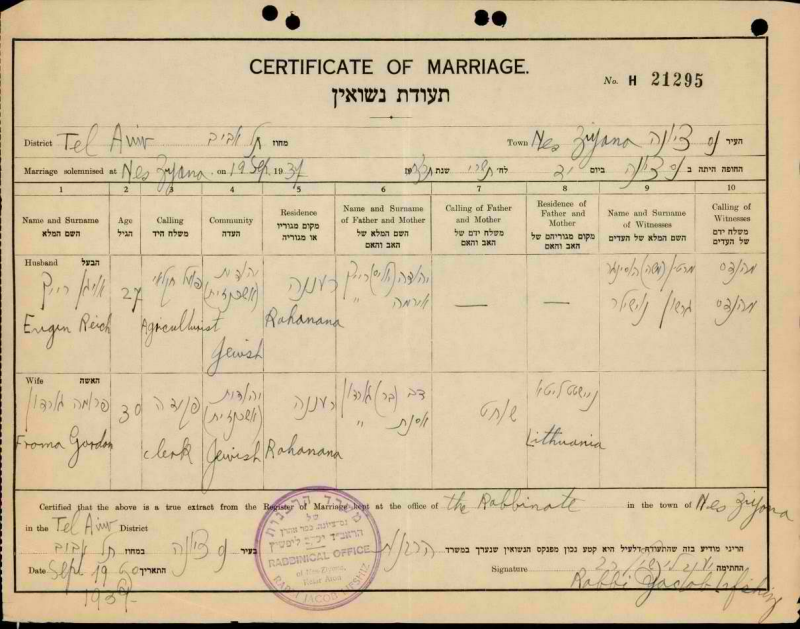 CERTIFICATE OF MARRIAGE.
No. H 21295
תעודת נשואין
District Tel Aviv תל אביב מחוז Town Nes Ziyona נס ציונה העיר
Marriage solemnised at Nes Ziyona on 19 Sept. 1937 החופה היתה ב נס ציונה ביום יד לח' תשרי שנת
1 2 3 4 5 6 7 8 9 10
Name and Surname Age Calling Community Residence Name and Surname of Father and Mother Calling of Father and Mother Residence of Father and Mother Name and Surname of Witnesses Calling of Witnesses
השם המלא הגיל משלח היד העדה מקום מגוריו או מגוריה השם המלא של האב והאם משלח ידם של האב והאם מקום מגוריהם של האב והאם השם המלא של העדים משלח ידם של העדים
Husband הבעל
אויגן רייך 27 פועל חקלאי יהודית (אשכנזית) רעננה יהודה רייך
אירמה " — — גרשון מהנדס
Eugen Reich Agriculturist Jewish Rahanana
Wife האשה
פרומה גורדון 30 פקידה יהודית (אשכנזית) רעננה דב (בר) גורדון שוחט ליטא
אסנת "
Froma Gordon clerk Jewish Rahanana Lithuania
Certified that the above is a true extract from the Register of Marriage kept at the office of the Rabbinate in the town of Nes Ziyona
in the Tel Aviv District
הריני מודיע בזה שהתעודה דלעיל היא קטע נכון מפנקס הנשואין שנערך במשרד הרבנות בעיר נס ציונה במחוז תל אביב
Date Sept 19 התאריך Signature החתימה
193
Rabbi Jacob Lifshiz
משרד הרבנות
של
RABBINICAL OFFICE
of Nes-Ziyona,
RABBI JACOB LIFSHIZ